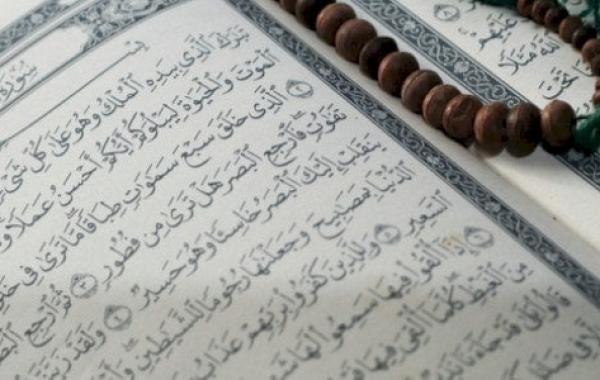 سُورَةُ
تَبَٰرَكَ ٱلَّذِي بِيَدِهِ ٱلْمُلْكُ وَهُوَ عَلَىٰ كُلِّ شَيْءٍ
ٱلْمَوْتَ وَٱلْحَيَوٰةَ لِيَبْلُوَكُمْ أَيُّكُمْ أَحْسَنُ عَمَلًا
ٱلَّذِي خَلَقَ سَبْعَ سَمَٰوَٰتٍ طِبَاقًا مَّا تَرَىٰ فِي
تَفَٰوُتٍ فَٱرْجِعِ ٱلْبَصَرَ هَلْ تَرَىٰ مِن فُطُورٍ ثُمَّ ٱرْجِعِ
يَنقَلِبْ إِلَيْكَ ٱلْبَصَرُ خَاسِئًا وَهُوَ حَسِيرٌ وَلَقَدْ
ٱلدُّنْيَا بِمَصَٰبِيحَ وَجَعَلْنَٰهَا رُجُومًا لِّلشَّيَٰطِينِ
ٱلسَّعِيرِ وَلِلَّذِينَ كَفَرُوا۟ بِرَبِّهِمْ عَذَابُ
إِذَآ أُلْقُوا۟ فِيهَا سَمِعُوا۟ لَهَا
مِنَ ٱلْغَيْظِ كُلَّمَآ أُلْقِيَ فِيهَا
قَالُوا۟ بَلَىٰ قَدْ جَآءَنَا
عَلَيْهِمْ
ٱللَّهُ مَثَلًا
تَحْتَ